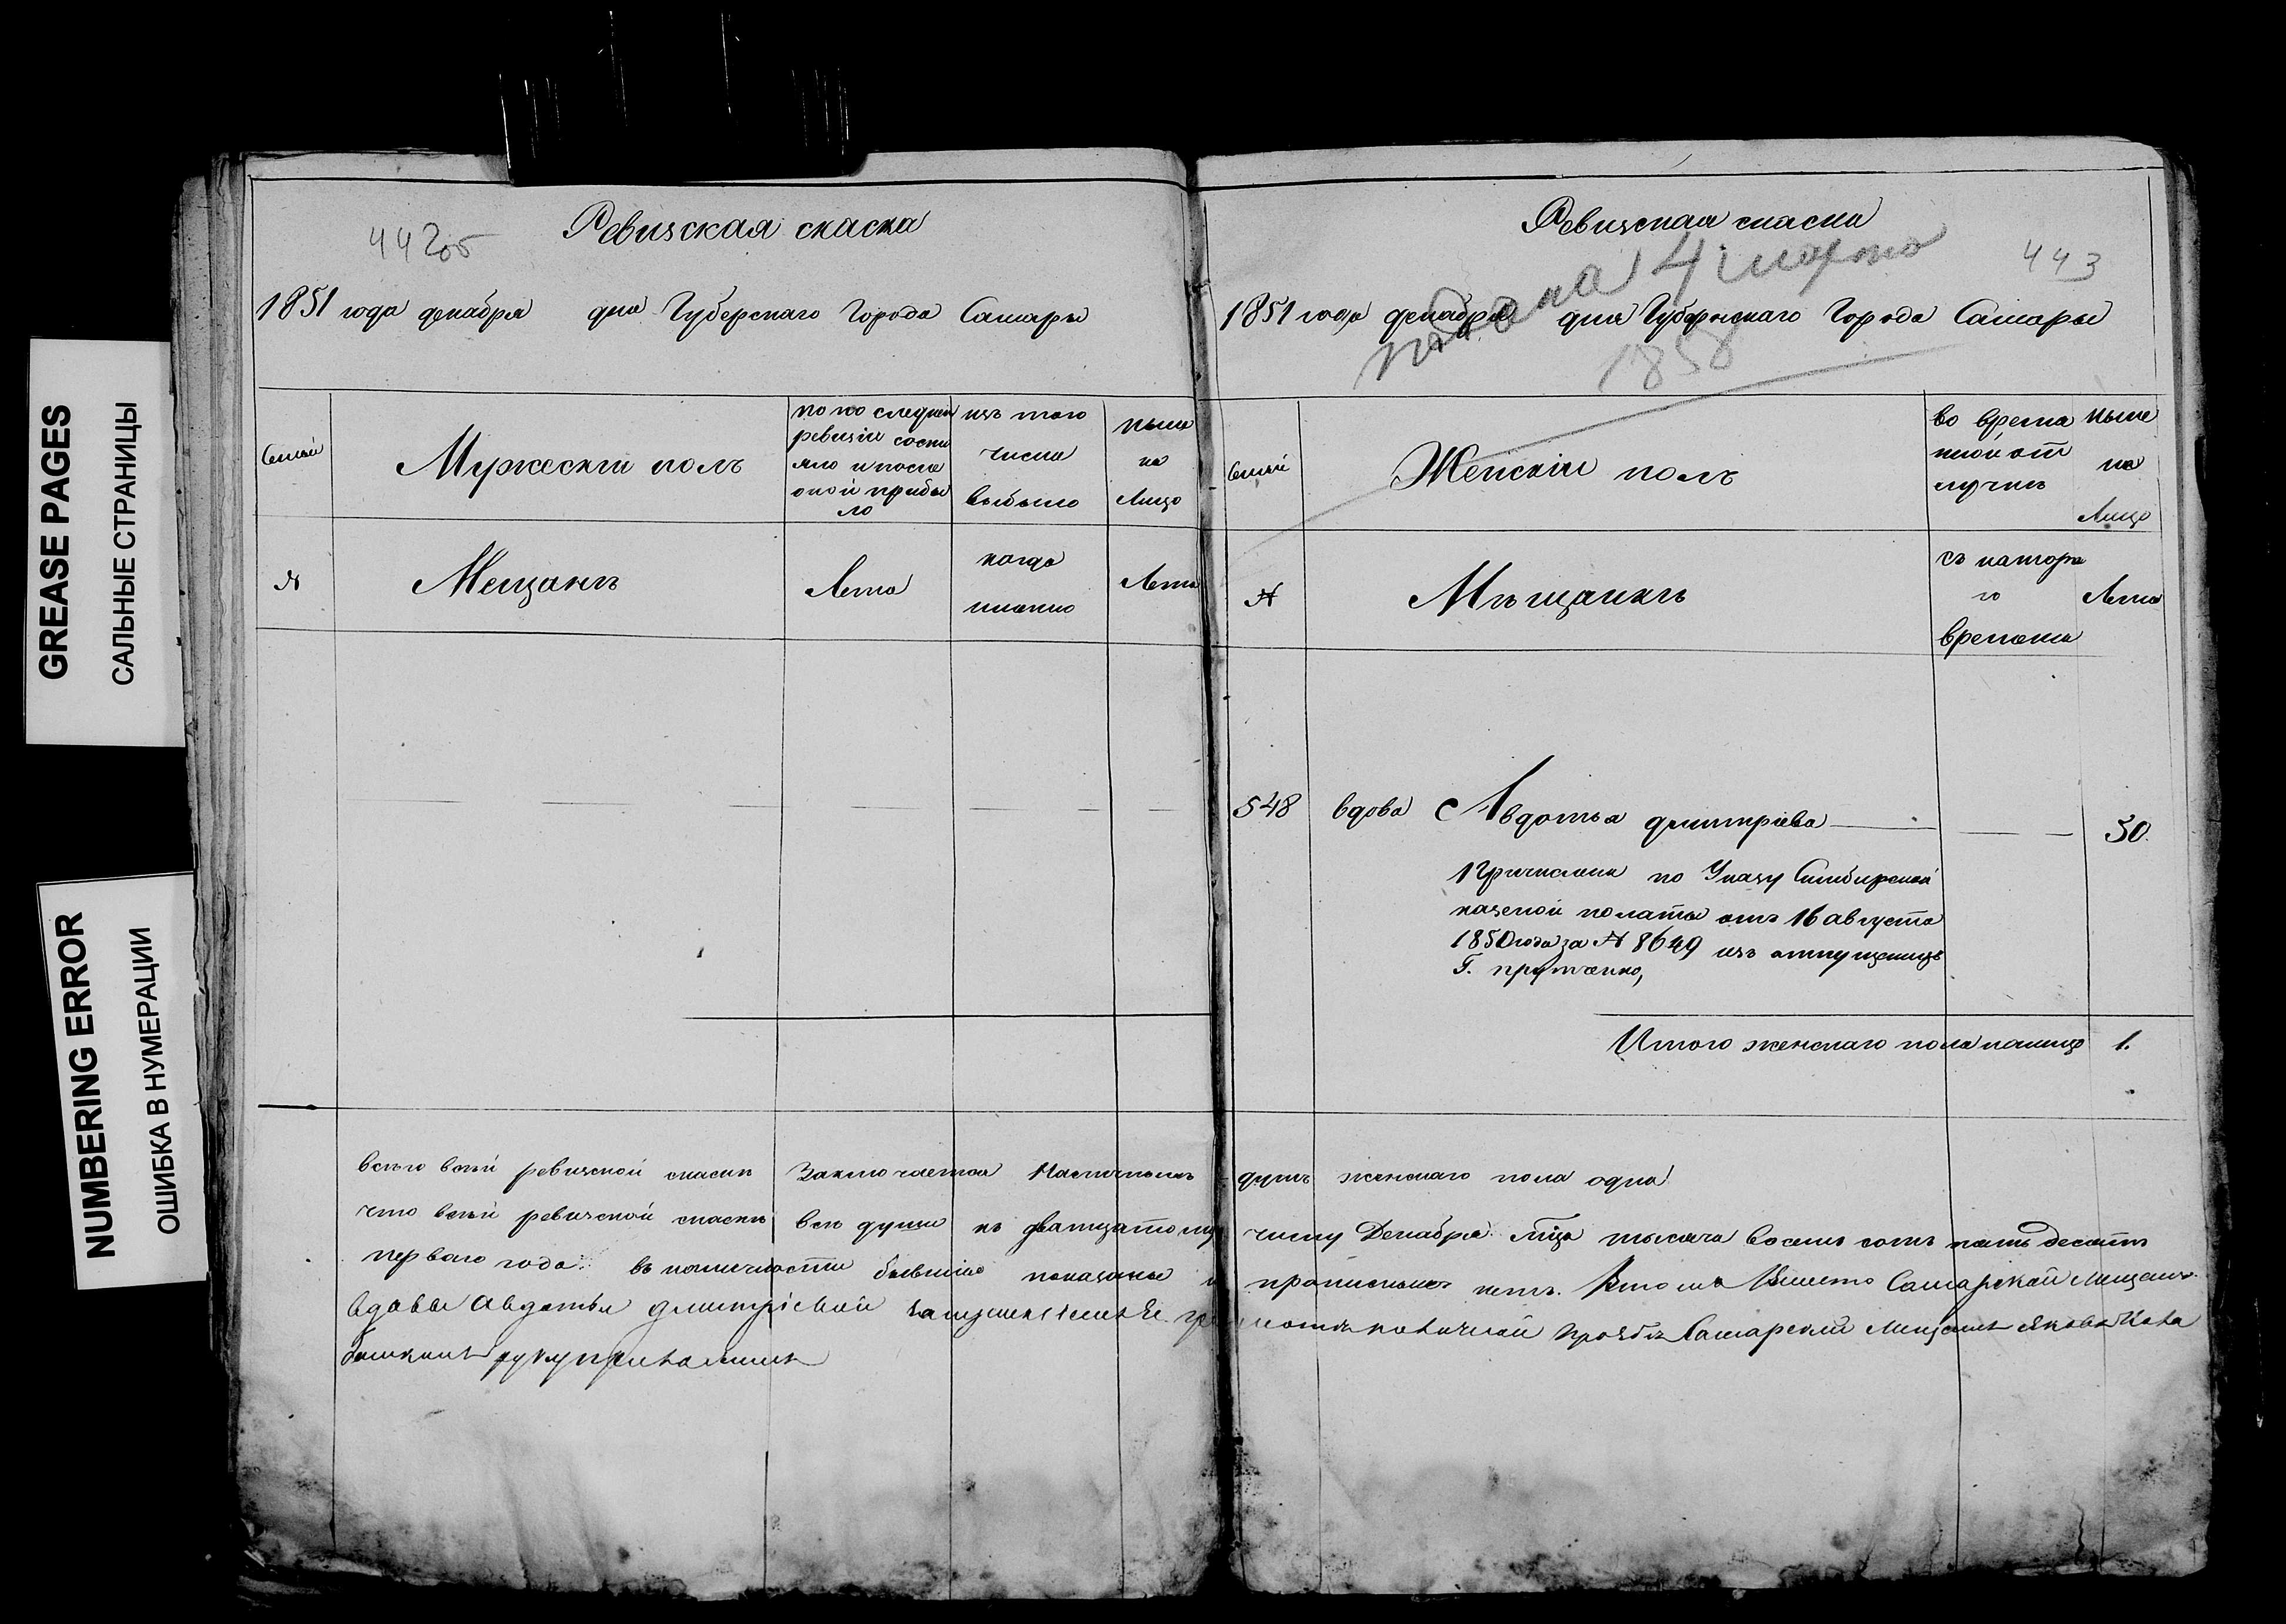 GREASE PAGES
САЛЬНЫЕ СТРАНИЦЫ
NUMBERING ERROR
ОШИБКА В НУМЕРАЦИИ
442об
Ревизская скаска
1851 года декабря дня Губерскаго Города Самары
Семьи
Мужески полъ
по последней ревизiи состояло и после оной прибыло
изъ того числа выбыло
ныне на Лицо
№
Мещанъ
Лета
когда именно
Лета
Ревизская скаска
443
подана 4 марта
1858
1851 года декабря дня Губернскаго Города Самары
Семьи
Женскiй полъ
во временной отлучкъ
ныне на Лицо
№
Мъщанкъ
съ котораго времени
Лета
548 вдова Авдотья дмитрiева 30.
Причислена по Указу Симбирской
казеной полаты отъ 16 августа
1850 года за № 8649 изъ отпущеницъ
Г.
Итого женскаго пола налицо 1.
всего всей ревизской скаски Заключается душъ женскаго пола одна
что всей ревизской скаски все души къ дватцатому числу Декабря мца тысяча восемь сотъ пять десятъ
первого года въ наличности бывшiе показаны и прописныхъ нетъ. Самарской Мещанской
вдовы Авдотьи дмитрiевой личной прозбъ Самарскай Мещанинъ Яковъ
руку приложилъ